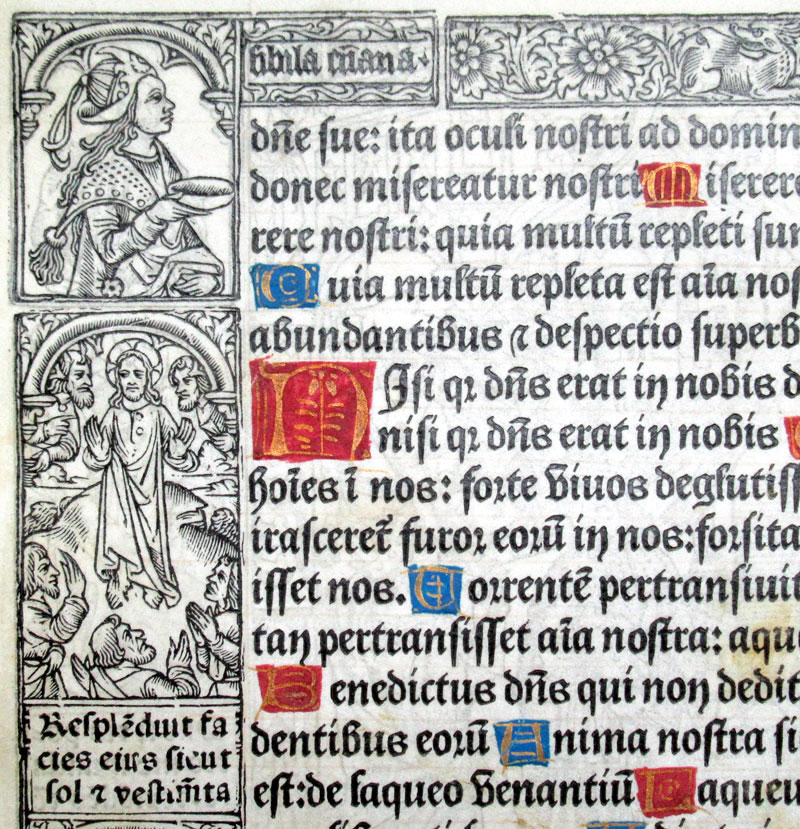 sibila cūana
dn̄e sue: ita oculi nostri ad domin
donec misereatur nostri Miserere
rere nostri: quia multū repleti sun
Quia multū repleta est aīa nos
abundantibus ⁊ despectio superb
NIsi qꝛ dn̄s erat in nobis d
nisi qꝛ dn̄s erat in nobis
hoīes ī nos: forte vivos deglutiss
irasceret̄ furor eorū in nos: forsita
isset nos. Torrentē pertransivit
tan pertransisset aīa nostra: aqu
Benedictus dn̄s qui non dedit
dentibus eorū Anima nostra si
est: de laqueo venantiū Laqueu
Resplēduit fa
cies eius sicut
sol ⁊ vestim̄ta